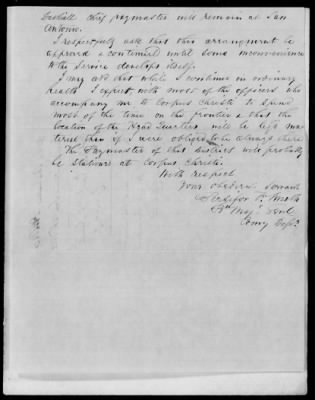 chief paymaster will remain at San
Antonio.
I respectfully ask that this arrangement be
approved & continued until some inconvenience
to the Service develops itself.
I may add that while I continue in ordinary
health I expect, with most of the officers who
accompany me to Corpus Christi to spend
most of the time on the frontier & that the
location of the Head Quarters will be less ma
terial than if I were obliged to be always there
The Paymaster of this district will probably
be stationed at Corpus Christi.
With respect
Your obedient servant
Persifor F. Smith
Bt Maj. Genl
Comg Dept.